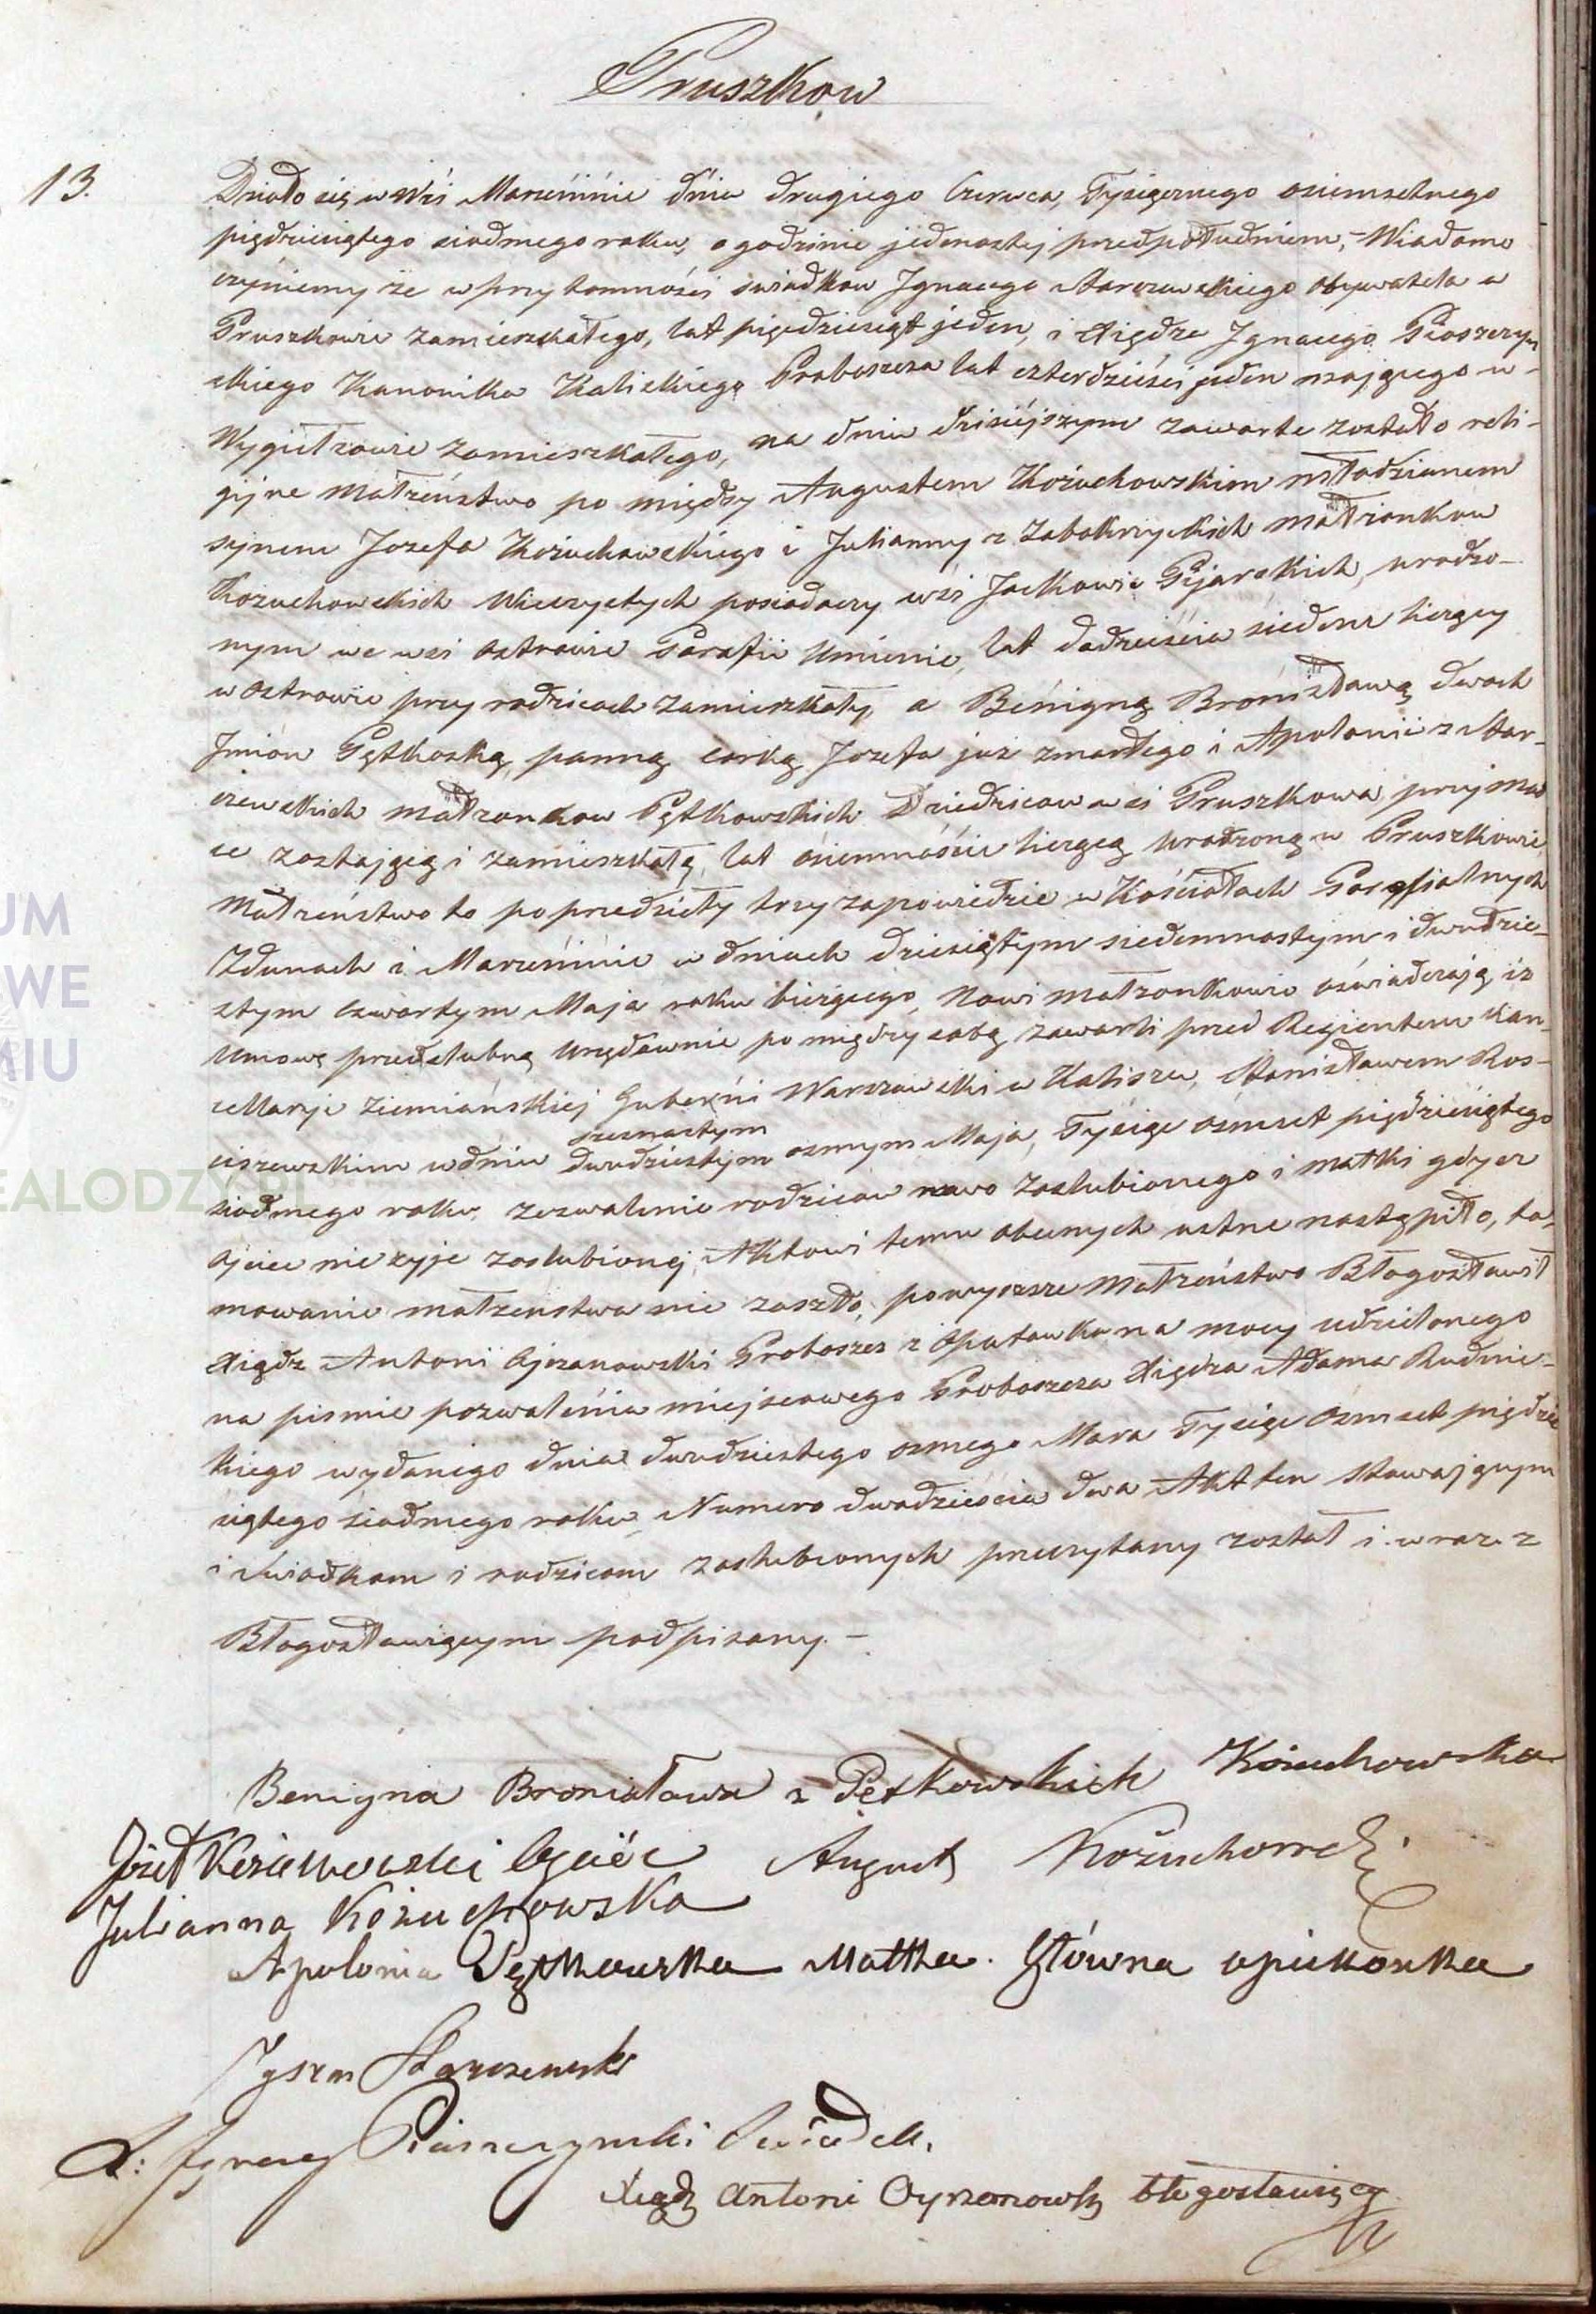 Pruszkow
13.
Działo się w Wsi Marzeninie dnia drugiego Czerwca, Tysiącznego osiemsetnego
piędziesiątego siodmego roku, o godzinie jedenastej przedpołudniem,- Wiadomo
czyniemy że w przytomności swiadkow Ignacego Starczewskiego Obywatela w
Pruszkowie zamieszkałego, lat pięcdziesiąt jeden, i Xiędza Ignacego Piaszczyn
skiego Kanonika Kaliskiego Proboszcza lat czterdzieści jeden mającego w-
Wygiełzowie zamieszkałego, na dniu dzisiejszym zawarte zostało reli-
gijne Małżeństwo po między Augustem Kożuchowskim młodzianem
synem Jozefa Kożuchowskiego i Julianny z Zabokrzyckich małżonkow
Kożuchowskich Wieczystych posiadaczy wsi Jackowic Pijarskich, urodzo-
nym we wsi Ostrowie Parafii Umienie, lat dadzieścia siedem liczący
w Ostrowie przy rodzicach zamieszkały, a Benigną Bronisławą dwoch
Imion Pętkoską, panną corką Jozefa już zmarłego i Apolonii z Star-
czewskich małżonkow Pętkowskich Dziedzicow wsi Pruszkowa, przy mat
ce zostającą i zamieszkałą, lat ośiemnaście liczącą urodzoną w Pruszkowie,
Małżeństwo to poprzedziły trzy zapowiedzie w Kościołach Parafialnych
Zdunach i Marzeninie w dniach dziesiątym siedemnastym i dwudzie-
stym czwartym Maja roku bieżącego, Nowi małżonkowie oświadczają, iż
Umowę przedslubną urzędownie po między sobą zawarli przed Regientem Kan-
cellaryi Ziemiańskiej Guberńi Warszawskiej w Kaliszu, Stanisławem Ros-
szesnastym
ciszewskim w dniu dwudziestym osmym Maja, Tysiąc ośmset piędziesiątego
siodmego roku, zezwalenie rodzicow nowo zaslubionego i matki gdyż
ojciec nie żyje zaslubionej, Aktowi temu obecnych ustne nastąpiło, ta-
mowanie małżenstwa nie zaszło, powyższe Małżeństwo Błogosławił
Xiądz Antoni Cyrzanowski Proboszcz z Opatowka na mocy udzielonego
na pismie pozwoleńia miejscowego Proboszcza Xiędza Adama Rudnic-
kiego wydanego dnia dwudziestego osmego Maia Tysiąc Osmset pięddzie
siątego siodmego roku, Numero dwadzieścia dwa Akt ten Stawającym
i Swiadkom i rodzicom zaslubionych przeczytany został i wraz z
Błogosławiącym podpisany.-
Benigna Bronisława z Pętkowskich Kożuchowska
Józef Kożuchowski Ojciéc August Kożuchowski
Julianna Kożuchowska
Apolonia Pętkowska Matka. Główna opiekonka
Ignacy Starczewski
X: Ignacy Piaszczynski Swiadek.
Xiądz Antoni Cyrzanowski błogosławiący